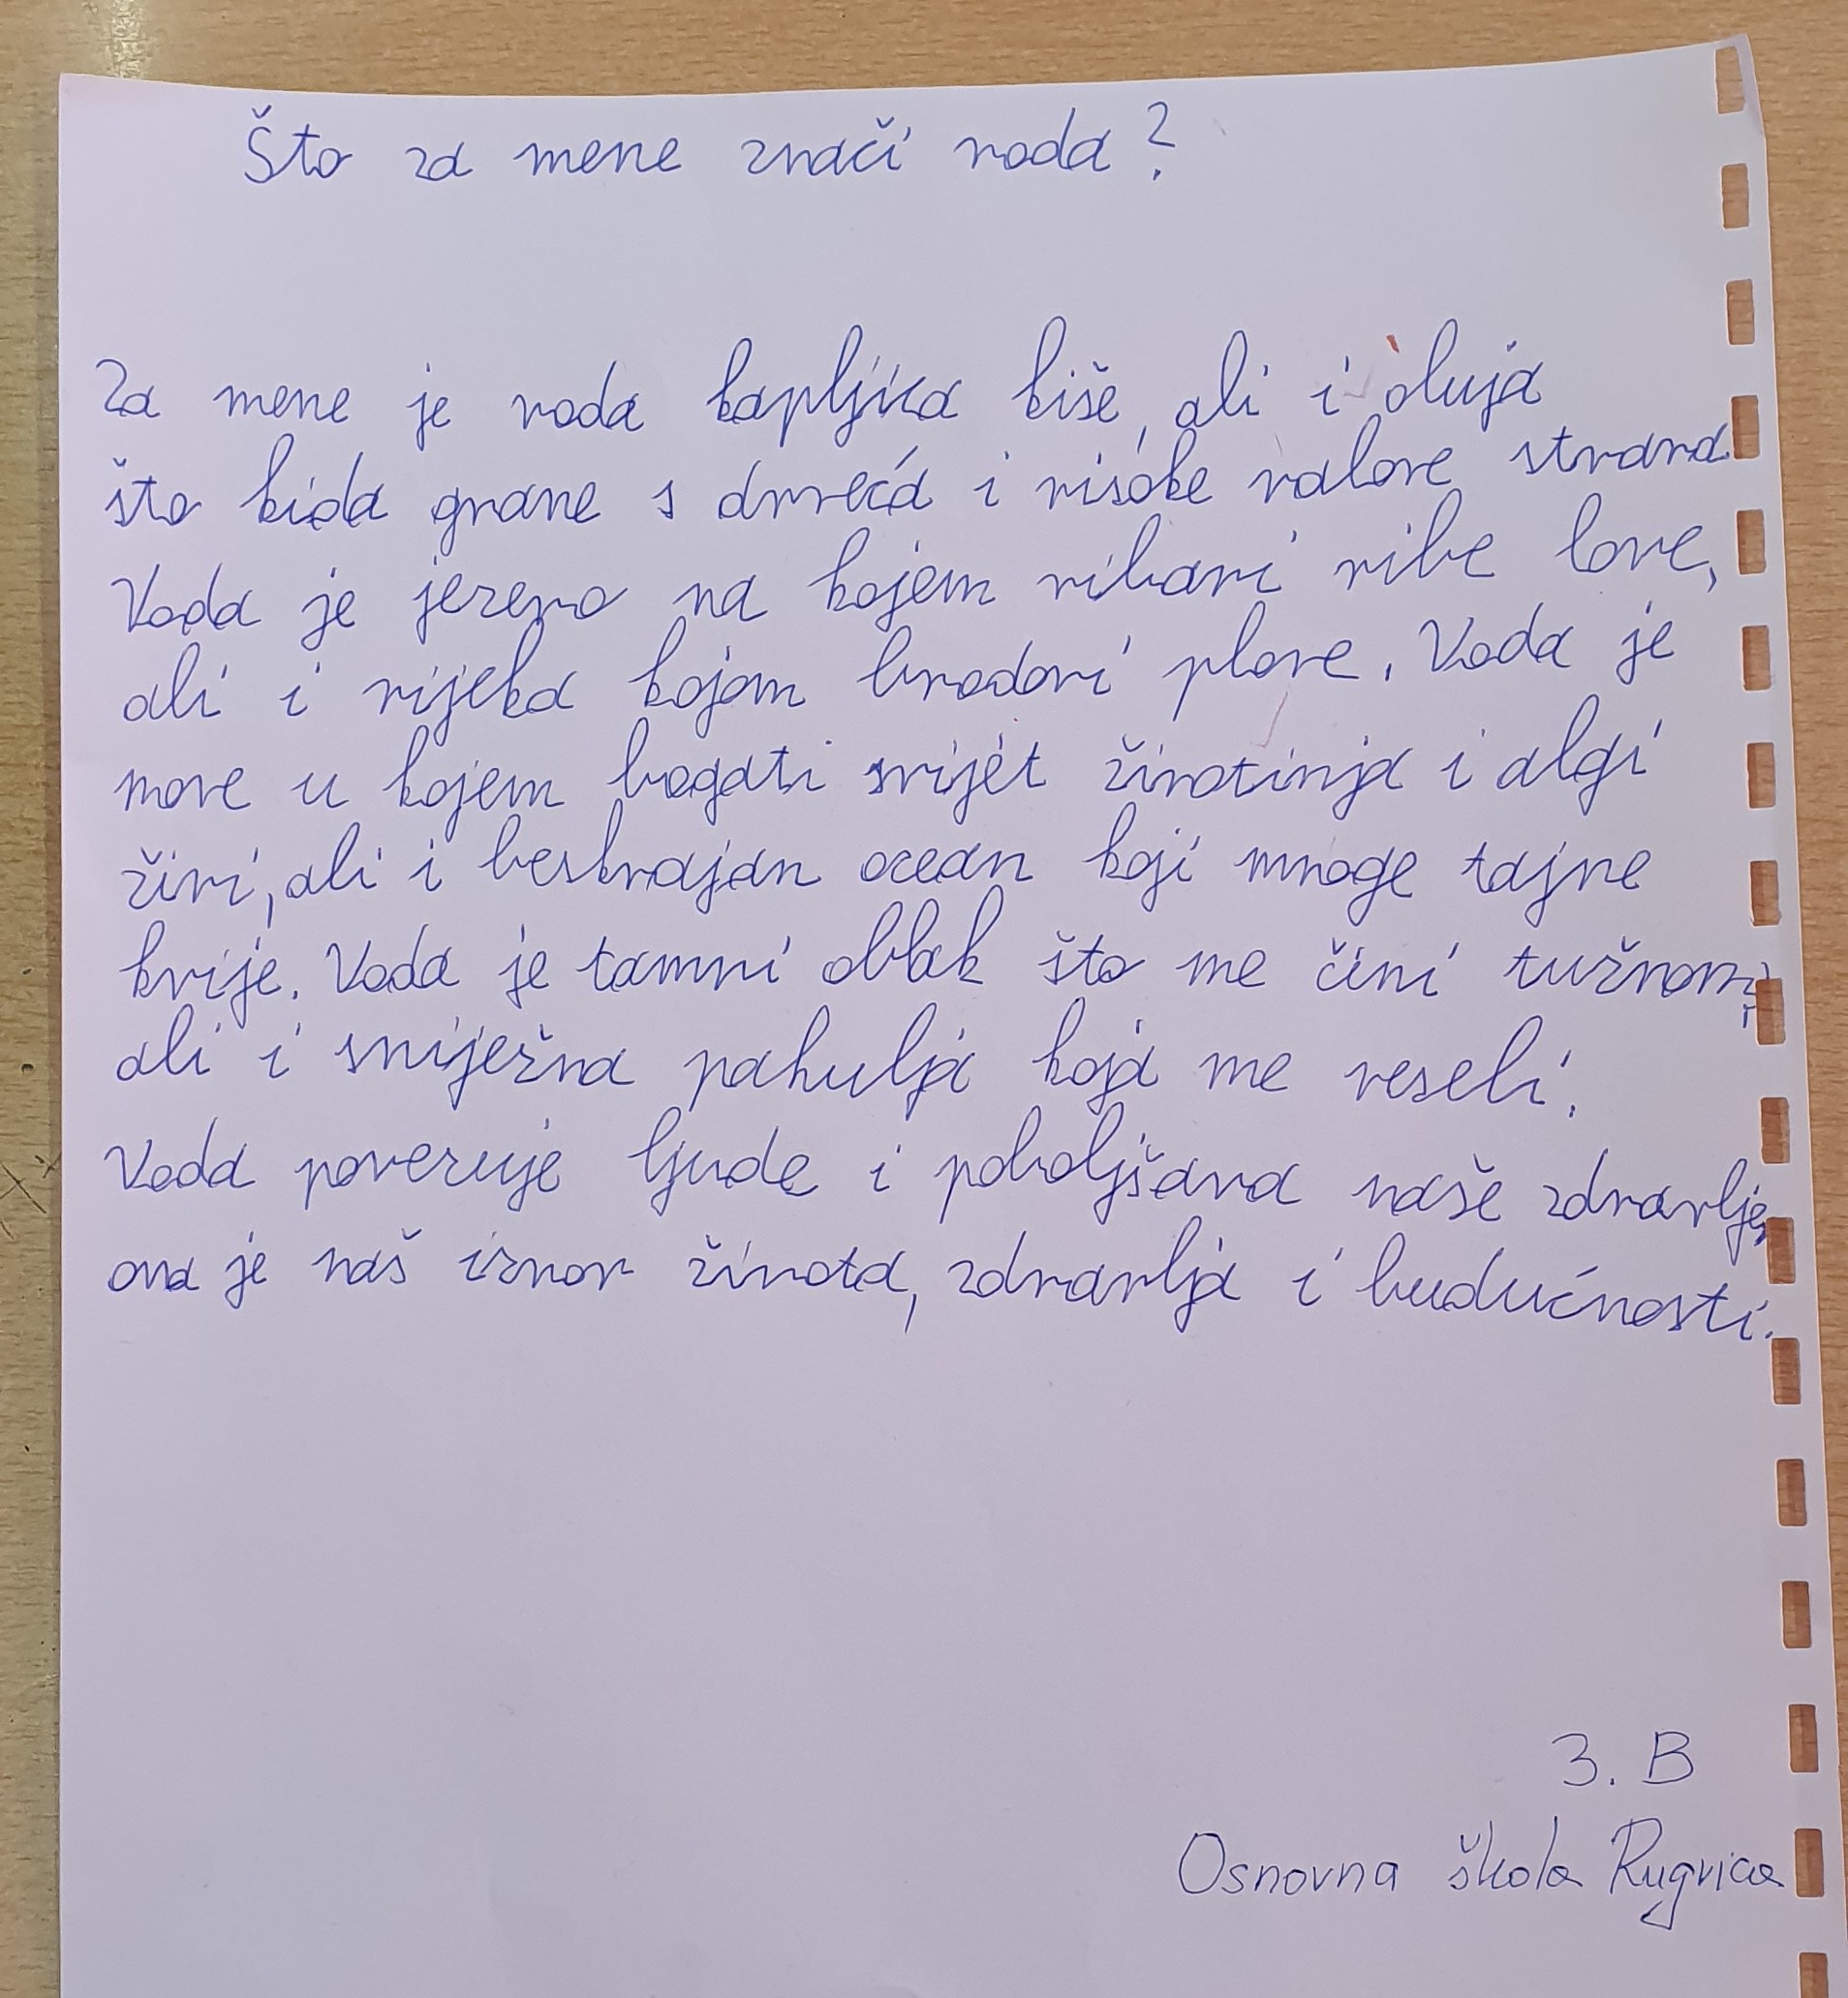 Što za mene znači voda?
Za mene je voda kapljica kiše, ali i oluja
što kida grane s drveća i visoke valove stvara.
Voda je jezero na kojem ribari ribe love,
ali i rijeka kojom brodovi plove. Voda je
more u kojem bogati svijet životinja i algi
živi, ali i beskrajan ocean koji mnoge tajne
krije. Voda je tamni oblak što me čini tužnom,
ali i sniježna pahulja koja me veseli.
Voda povezuje ljude i poboljšava naše zdravlje,
ona je naš izvor života, zdravlja i budućnosti.
3. B
Osnovna škola Rugvica